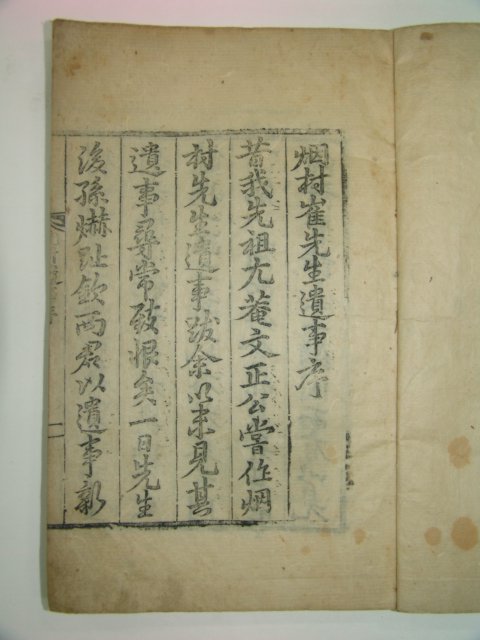 烟村崔先生遺事序
昔我先祖尤菴文正公嘗作烟
村先生遺事跋余以未見其
遺事尋常致恨矣一日先生
後孫爀趾欽两君以遺事新